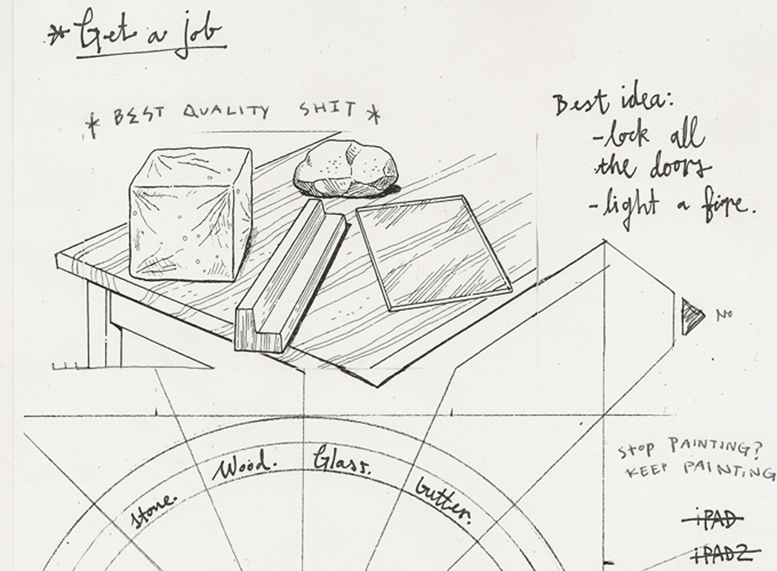 * Get a job
* BEST QUALITY SHIT *
Best idea:
- lock all
the doors
- light a fire.
No
STOP PAINTING?
KEEP PAINTING
Stone.
Wood.
Glass.
Gutter.
iPAD
iPAD2